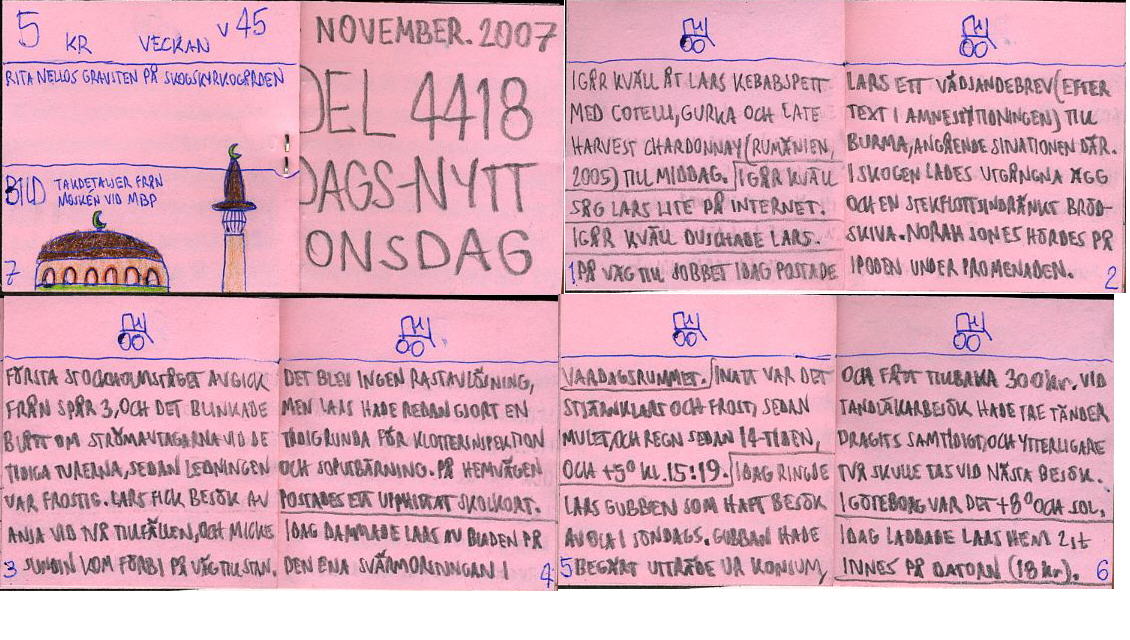 5 KR VECKAN V 45
RITA NELLOS GRAVSTEN PÅ SKOGSKYRKOGÅRDEN
BILD TAKDETALJER FRÅN
MOSKÉN VID MBP
7
NOVEMBER. 2007
DEL 4418
DAGS-NYTT
ONSDAG
IGÅR KVÄLL ÅT LARS KEBABSPETT
MED COTELLI, GURKA OCH LATE
HARVEST CHARDONNAY (RUMÄNIEN,
2005) TILL MIDDAG. IGÅR KVÄLL
SÅG LARS LITE PÅ INTERNET.
IGÅR KVÄLL DUSCHADE LARS.
1 PÅ VÄG TILL JOBBET IDAG POSTADE
LARS ETT VÄDJANDEBREV (EFTER
TEXT I AMNESTYTIDNINGEN) TILL
BURMA, ANGÅENDE SITUATIONEN DÄR.
I SKOGEN LADES UTGÅNGNA ÄGG
OCH EN STEKFLOTTSINDRÄNKT BRÖD-
SKIVA. NORAH JONES HÖRDES PÅ
IPODEN UNDER PROMENADEN. 2
FÖRSTA STOCKHOLMSTÅGET AVGICK
FRÅN SPÅR 3, OCH DET BLINKADE
BLÅTT OM STRÖMAVTAGARNA VID DE
TIDIGA TURERNA, SEDAN LEDNINGEN
VAR FROSTIG. LARS FICK BESÖK AV
ANJA VID TVÅ TILLFÄLLEN, OCH MICKE
3 SUNDIN KOM FÖRBI PÅ VÄG TILL STAN.
DET BLEV INGEN RASTAVLÖSNING,
MEN LARS HADE REDAN GJORT EN
TIDIG RUNDA FÖR KLOTTERINSPEKTION
OCH SOPUTBÄRNING. PÅ HEMVÄGEN
POSTADES ETT UPPHITTAT SKOLKORT.
IDAG DAMMADE LARS AV BLADEN PÅ
DEN ENA SVÄRMORSTUNGAN I 4
VARDAGSRUMMET. INATT VAR DET
STJÄRNKLART OCH FROST, SEDAN
MULET, OCH REGN SEDAN 14-TIDEN,
OCH +5° KL. 15:19. IDAG RINGDE
LARS GUBBEN SOM HAFT BESÖK
AV OLA I SÖNDAGS. GUBBEN HADE
5 BEGÄRT UTTRÄDE UR KONSUM,
OCH FÅTT TILLBAKA 300 kr. VID
TANDLÄKARBESÖK HADE TRE TÄNDER
DRAGITS SAMTIDIGT, OCH YTTERLIGARE
TVÅ SKULLE TAS VID NÄSTA BESÖK.
I GÖTEBORG VAR DET +8° OCH SOL.
IDAG LADDADE LARS HEM 2 ST
INNES PÅ DATORN (18 kr). 6